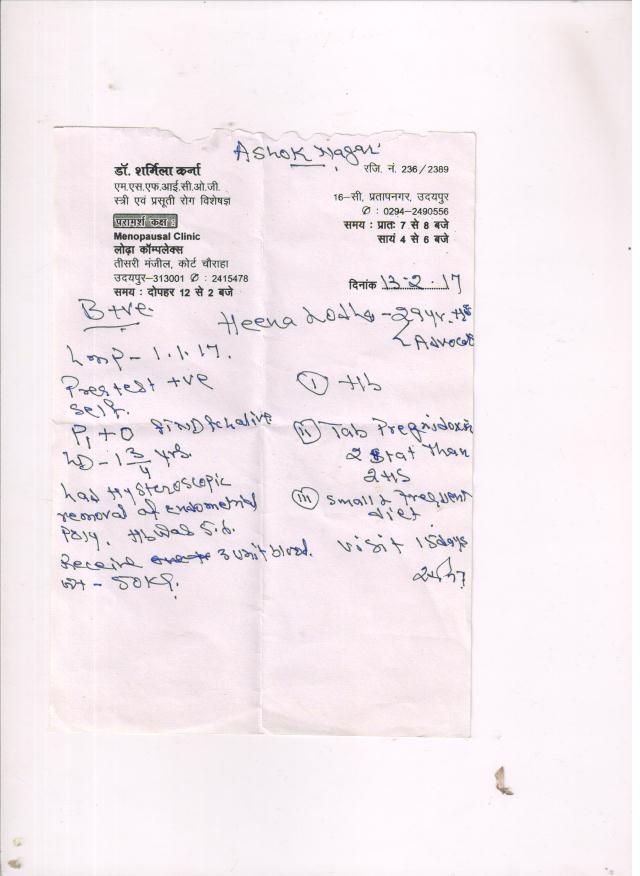 Ashok Nagar
डॉ. शर्मिला कर्ना
एम.एस.एफ.आई.सी.ओ.जी.
स्त्री एवं प्रसूती रोग विशेषज्ञ
परामर्श कक्ष :
Menopausal Clinic
लोढ़ा कॉम्पलेक्स
तीसरी मंजील, कोर्ट चौराहा
उदयपुर–313001 ✆ : 2415478
समय : दोपहर 12 से 2 बजे
रजि. नं. 236/2389
16–सी, प्रतापनगर, उदयपुर
✆ : 0294-2490556
समय : प्रातः 7 से 8 बजे
सायं 4 से 6 बजे
दिनांक 13-2-17
B+ve.
Heena Lodha - 29yr.
Advocate
Lmp - 1.1.17.
Preg test +ve
self.
P1+0 FTND Fch alive
LD - 1 3/4 yrs.
had Hysteroscopic
removal of endometrial
Poly. Hb was 5.6.
Receive 3 unit blood.
wt - 50Kg.
(i) Hb
(ii) Tab Pregnidoxin
2 stat than
2 HS
(iii) small & frequent
diet
visit 15days